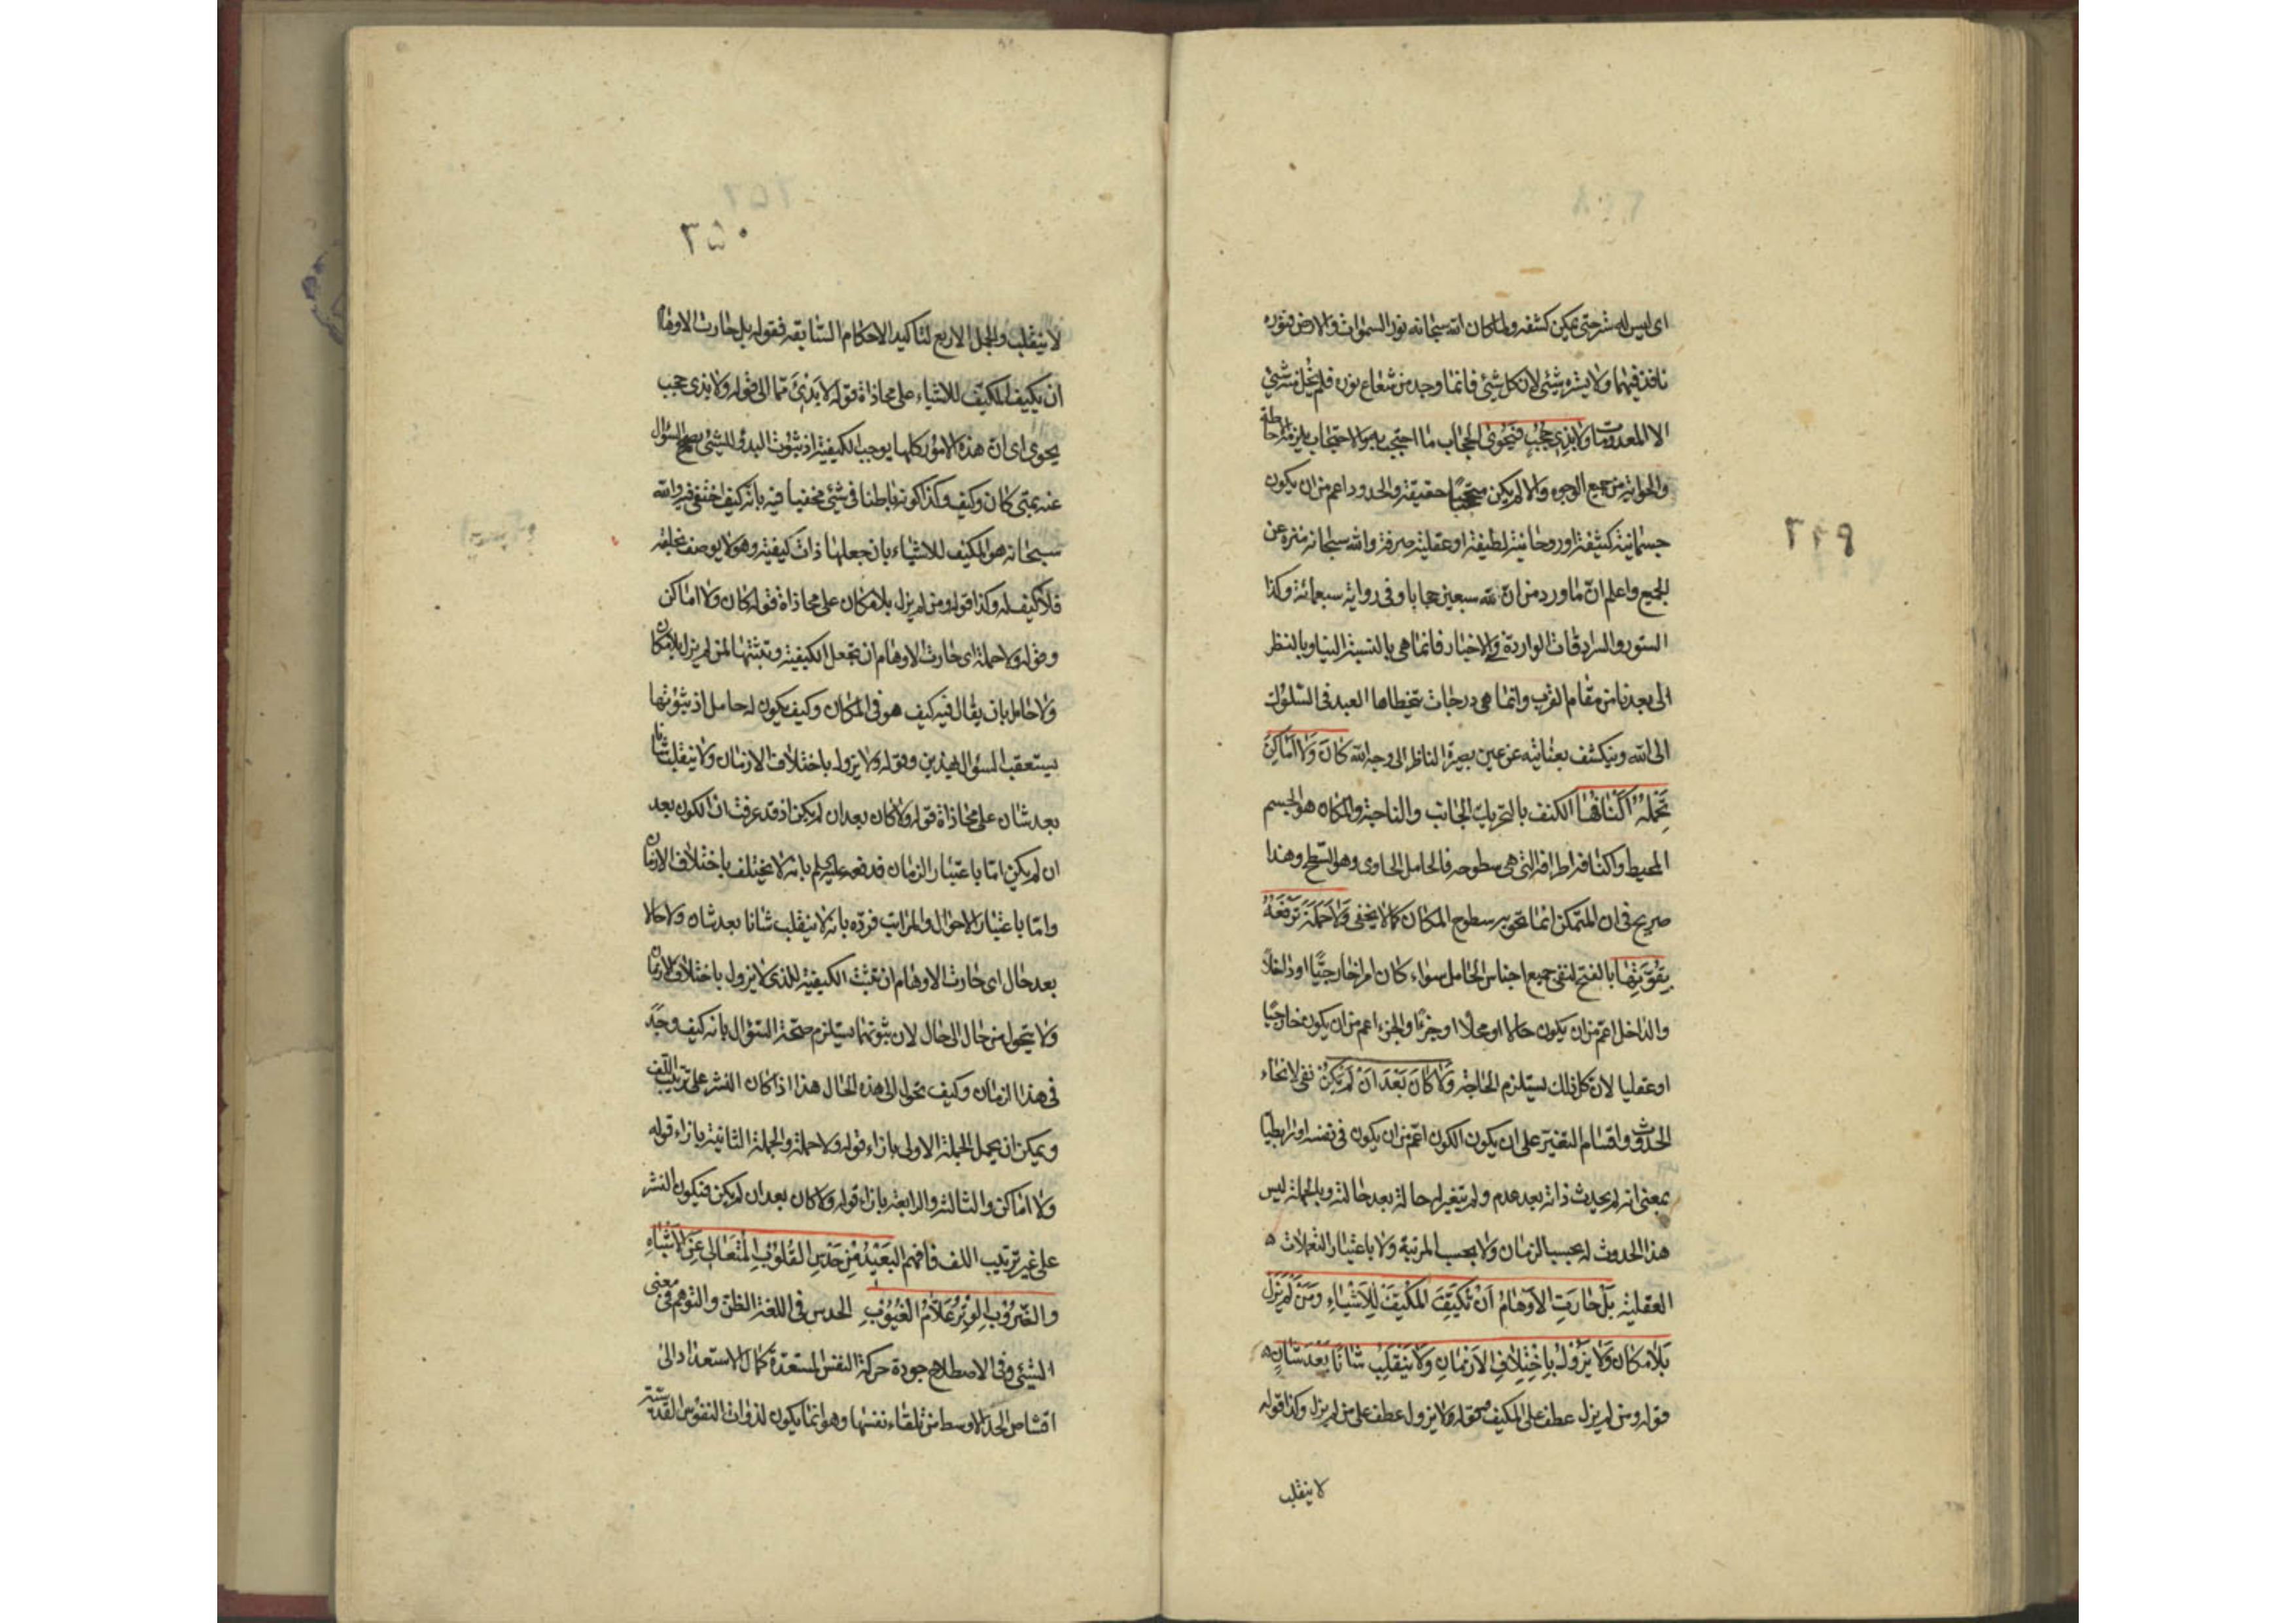 اى ليس له ستر حتى يمكن كشفه ولما كان الله سبحانه نور السموات والارض فنوره
نافذ فيهما ولا يستره شئ لان كل شئ فانما وجد من شعاع نوره فلم يخل منه شئ
الا المعدومات ولا بذى حجب فتحوى الحجاب ما احتجب به والاحتجاب يلزمه احاطة
والحواية من جميع الوجوه والا لم يكن محتجبا حقيقة والحدود اعم من ان يكون
جسمانية كثيفة او روحانية لطيفة او عقلية صرفة والله سبحانه منزه عن
الجميع واعلم ان ما ورد من ان لله سبعين حجابا وفى رواية سبعمائة وكذا
الستور والسرادقات الواردة فى الاخبار فانما هى بالنسبة الينا وبالنظر
الى بعدنا من مقام القرب وانما هى درجات يتخطاها العبد فى السلوك
الى الله وينكشف بعنايته عن عين بصيرة الناظر الى وجه الله كَانَ وَلَا اَمَاكِنَ
تَحْمِلُهُ اَكْنَافُهَا الكنف بالتحريك الجانب والناحية والمكان هو الجسم
المحيط واكنافه اطرافه التى هى سطوحه فالحامل الحاوى وهو السطح وهذا
صريح فى ان المتمكن انما تحويه سطوح المكان كما لا يخفى وَلَا حَمَلَةَ تَرْفَعُهُ
بِقُوَّتِهَا بالفتح لنفى جميع اجناس الحامل سواء كان امرا خارجيا او داخلا
والداخل اعم من ان يكون حالا او محلا او جزءا والجزء اعم من ان يكون خارجيا
او عقليا لان كل ذلك يستلزم الحاجة وَلَا كَانَ بَعْدَ اَنْ لَمْ يَكُنْ نفى لانحاء
الحدوث واقسام التغير على ان يكون الكون اعم من ان يكون فى نفسه او رابطيا
بمعنى انه لم يحدث ذاته بعد عدم ولم يتغير له حالة بعد حالة وبالجملة ليس
هذا الحدوث له بحسب الزمان ولا بحسب المرتبة ولا باعتبار التعملات
العقلية بَلْ حَارَتِ الاَوْهَامُ اَنْ تُكَيِّفَ المُكَيِّفَ لِلاَشْيَاءِ وَمَنْ لَمْ يَزَلْ
بِلَا مَكَانٍ وَلَا يَزُولُ بِاخْتِلَافِ الاَزْمَانِ وَلَا يَنْقَلِبُ شَانًا بَعْدَ شَانٍ
فقوله ومن لم يزل عطف على المكيف وقوله ولا يزول عطف على من لم يزل وكذا قوله
لا ينقلب
٣٥٠
لا ينقلب والجمل الاربع لتاكيد الاحكام السابقة فقوله بل حارت الاوهام
ان يكيف المكيف للاشياء على محاذاة قوله لا بذى الى قوله ولا بذى حجب
يحوى اى ان هذه الامور كلها يوجب الكيفية اذ ثبوت البدؤ للشئ يصحح السؤال
عنه بمتى كان وكيف وكذا كونه باطنا فى شئ مخفيا فيه بانه كيف اختفى فيه والله
سبحانه هو المكيف للاشياء بان جعلها ذات كيفية وهو لا يوصف بخلقه
فلا كيف له وكذا قوله ومن لم يزل بلا مكان على محاذاة قوله كان ولا اماكن
وقوله ولا حملة اى حارت الاوهام ان تجعل الكيفية وتثبتها لمن لم يزل بلا مكان
ولا حامل بان يقال فيه كيف هو فى المكان وكيف يكون له حامل اذ ثبوتها
يستعقب السؤال بهذين وقوله ولا يزول باختلاف الازمان ولا ينقلب شانا
بعد شان على محاذاة قوله ولا كان بعد ان لم يكن اذ قد عرفت ان الكون بعد
ان لم يكن اما باعتبار الزمان فدفعه عليه السلم بانه لا يختلف باختلاف الازمان
واما باعتبار الاحوال والمراتب فرده بانه لا ينقلب شانا بعد شان ولا حالا
بعد حال اى حارت الاوهام ان تثبت الكيفية للذى لا يزول باختلاف الازمان
ولا يتحول من حال الى حال لان ثبوتهما يستلزم صحة السؤال بانه كيف وجد
فى هذا الزمان وكيف تحول الى هذه الحال هذا اذا كان النشر على ترتيب اللف
ويمكن ان يجعل الجملة الاولى بازاء قوله ولا حملة والجملة الثانية بازاء قوله
ولا اماكن والثالثة والرابعة بازاء قوله ولا كان بعد ان لم يكن فيكون النشر
على غير ترتيب اللف فافهم البَعِيدُ مِنْ حَدْسِ القُلُوبِ المُتَعَالِى عَنِ الاَشْبَاهِ
والضُّرُوبِ الوِتْرُ عَلَّامُ الغُيُوبِ الحدس فى اللغة الظن والتوهم فى معنى
الشئ وفى الاصطلاح جودة حركة النفس المستعدة كمال الاستعداد الى
اقتناص الحد الاوسط من تلقاء نفسها وهو انما يكون لذوات النفوس القدسية